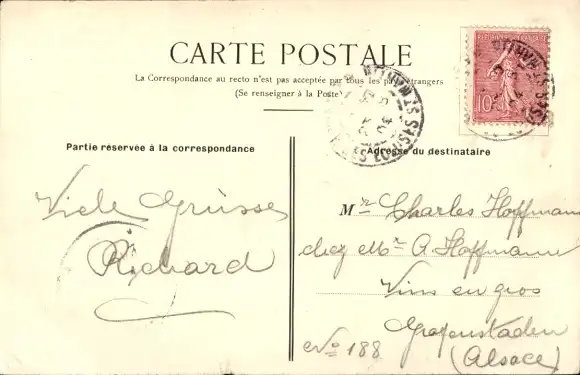 CARTE POSTALE
La Correspondance au recto n'est pas acceptée par tous les pays étrangers
(Se renseigner à la Poste)
REPUBLIQUE FRANÇAISE
10
Partie réservée à la correspondance
Adresse du destinataire
Viele Grüsse
Richard
Mr Charles Hoffmann
chez Mr A. Hoffmann
Vins en gros
Grafenstaden
(Alsace)
No 188